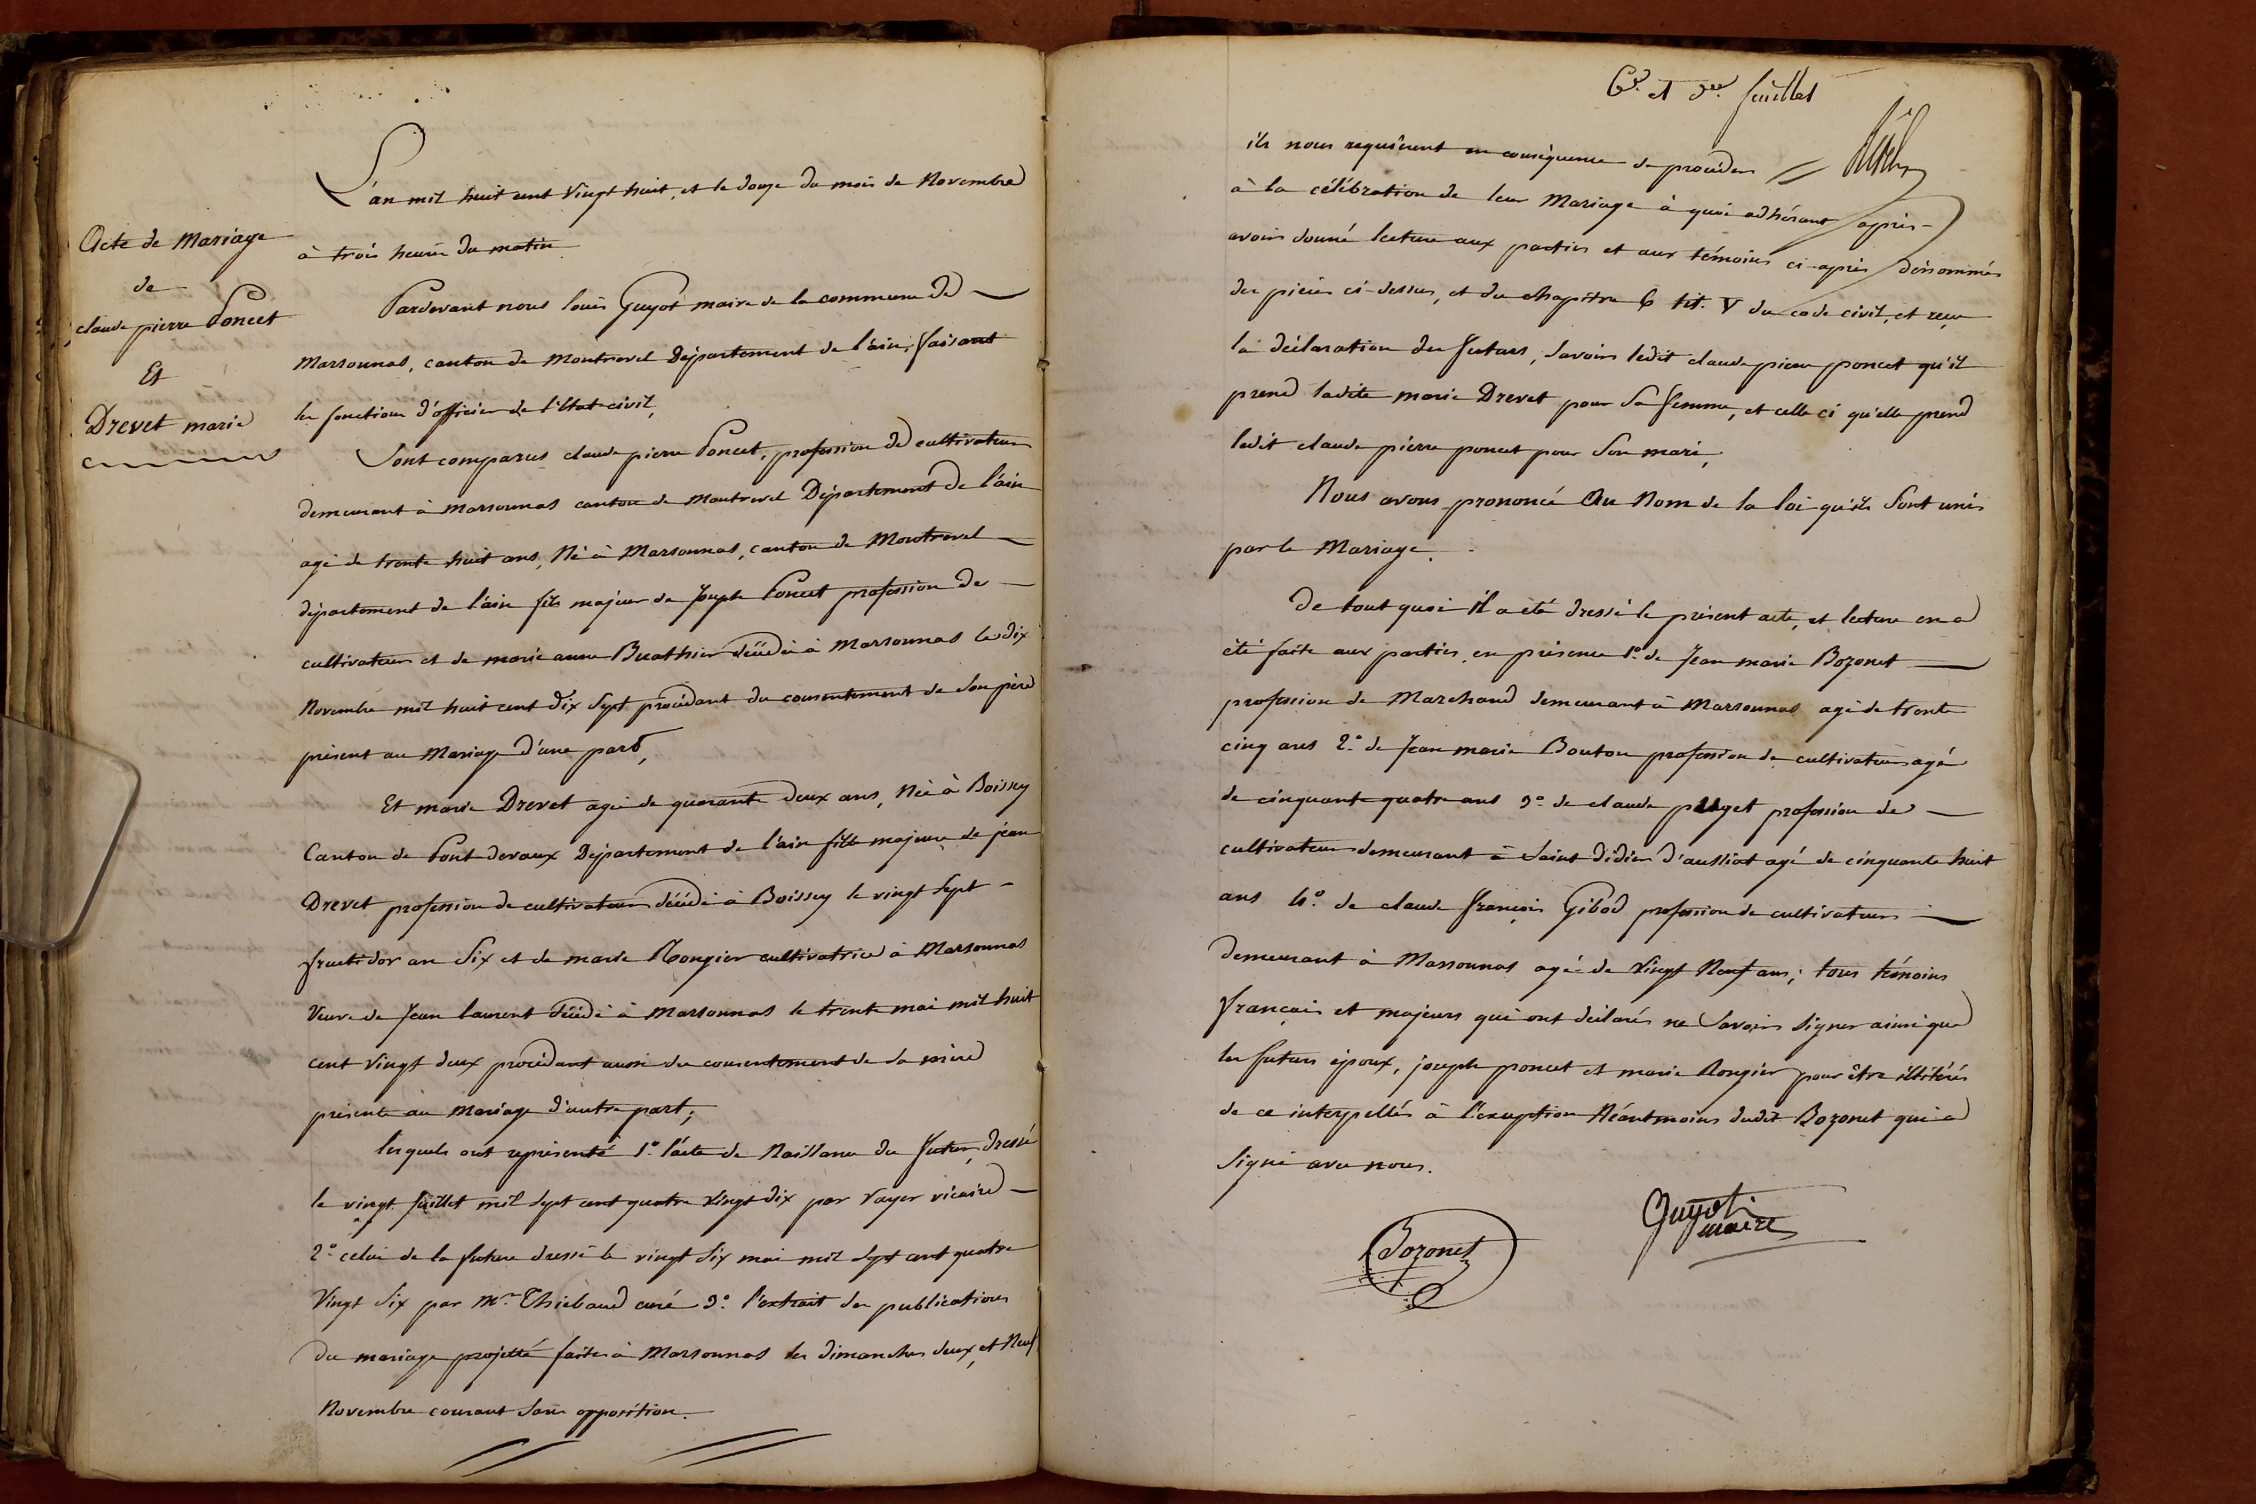 Acte de Mariage
de
claude pierre Poncet
Et
Drevet marie
L'an mil huit cent Vingt huit, et le douze du mois de Novembre
à trois heures du matin
Pardevant nous louis Guyot maire de la commune de
Marsonnas, canton de Montrevel Département de l'ain, faisant
les fonctions d'officier de l'état civil,
Sont comparus claude pierre Poncet, profession de cultivateur
demeurant à marsonnas canton de Montrevel Département de l'ain
agé de trente huit ans, Né à Marsonnas, canton de Montrevel
département de l'ain fils majeur de Joseph Poncet profession de
cultivateur et de marie anne Buathier décédée à Marsonnas le dix
Novembre mil huit cent dix Sept procédant du consentement de son père
présent au Mariage d'une part,
Et marie Drevet agée de quarante deux ans, Née à Boissey
Canton de Pont devaux Département de l'ain fille majeure de jean
Drevet profession de cultivateur décédé à Boissey le vingt Sept
fructidor an Six et de marie Rongier cultivatrice à Marsonnas
Veuve de Jean laurent décédé à Marsonnas le trente mai mil huit
cent Vingt deux procédant aussi du consentement de sa mère
présente au Mariage d'autre part;
lesquels ont représenté 1.º l'acte de Naissance du futur, dressé
le vingt Juillet mil Sept cent quatre Vingt dix par vayer vicaire
2.º celui de la future dressé le vingt Six mai mil Sept cent quatre
Vingt Six par Mr. Thiebaud curé 3.º l'extrait des publications
du mariage projetté faites à Marsonnas les dimanches deux, et Neuf
Novembre courant Sans opposition.
6.e et d.er feuillet
ils nous requièrent en conséquence de procéder
à la célébration de leur Mariage à quoi adhérant après
avoir donné lecture aux parties et aux témoins ci-après dénommés
des pièces ci-dessus, et du chapitre 6 tit. V du code civil, et reçu
la déclaration des futurs, Savoir ledit claude pierre poncet qu'il
prend ladite marie Drevet pour Sa femme, et celle ci qu'elle prend
ledit claude pierre poncet pour Son mari,
Nous avons prononcé Au Nom de la loi qu'ils Sont unis
par le Mariage.
De tout quoi il a été dressé le présent acte, et lecture en a
été faite aux parties, en présence 1.º de Jean marie Bozonet
profession de Marchand demeurant à Marsonnas agé de trente
cinq ans 2.º de Jean marie Bouton profession de cultivateur agé
de cinquante quatre ans 3.º de claude puget profession de
cultivateur demeurant à Saint Didier d'aussiat agé de cinquante huit
ans 4.º de claude françois Gibod profession de cultivateur
demeurant à Marsonnas agé de Vingt Neuf ans; tous témoins
français et majeurs qui ont déclarés ne Savoir Signer ainsi que
les futurs époux, joseph poncet et marie Rongier pour être illitérés
de ce interpellés à l'exception Néantmoins dudit Bozonet qui a
Signé avec nous.
Bozonet
Guyot
maire